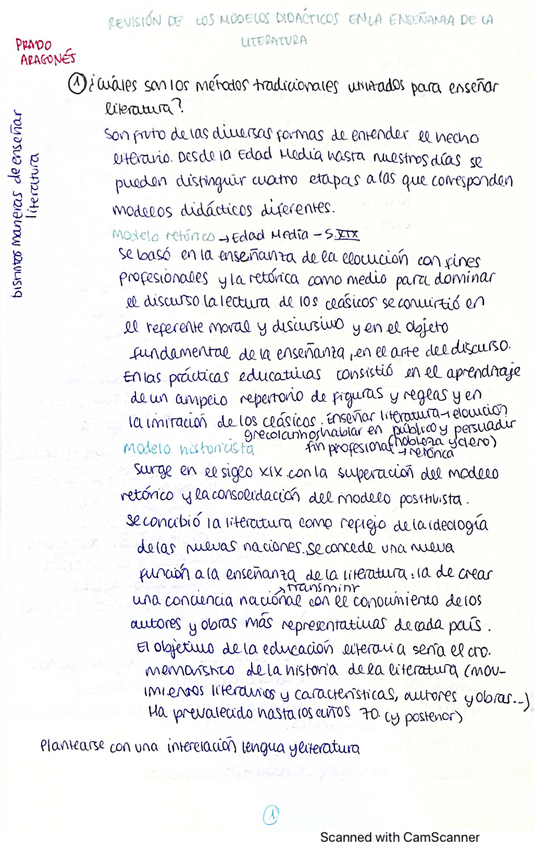 REVISIÓN DE LOS MODELOS DIDÁCTICOS EN LA ENSEÑANZA DE LA
LITERATURA
PRADO
ARAGONÉS
① ¿Cuáles son los métodos tradicionales utilizados para enseñar
literatura?
distintas maneras de enseñar
literatura
Son fruto de las diversas formas de entender el hecho
literario. Desde la Edad Media hasta nuestros días se
pueden distinguir cuatro etapas a las que corresponden
modelos didácticos diferentes.
Modelo retórico → Edad Media - S XIX
Se basó en la enseñanza de la elocución con fines
profesionales y la retórica como medio para dominar
el discurso la lectura de los clásicos se convirtió en
el referente moral y discursivo y en el objeto
fundamental de la enseñanza, en el arte del discurso.
En las prácticas educativas consistió en el aprendizaje
de un amplio repertorio de figuras y reglas y en
la imitación de los clásicos. Enseñar literatura → elocución
grecolatinos hablar en público y persuadir
fin profesional (nobleza y clero)
→ retórica
Modelo historicista
Surge en el siglo XIX con la superación del modelo
retórico y la consolidación del modelo positivista.
Se concibió la literatura como reflejo de la ideología
de las nuevas naciones. Se concede una nueva
función a la enseñanza de la literatura: la de crear
→ transmitir
una conciencia nacional con el conocimiento de los
autores y obras más representativas de cada país.
El objetivo de la educación literaria sería el cto.
memorístico de la historia de la literatura (mov-
imientos literarios y características, autores y obras...)
Ha prevalecido hasta los años 70 (y posterior)
Plantearse con una interelación lengua y literatura
①
Scanned with CamScanner